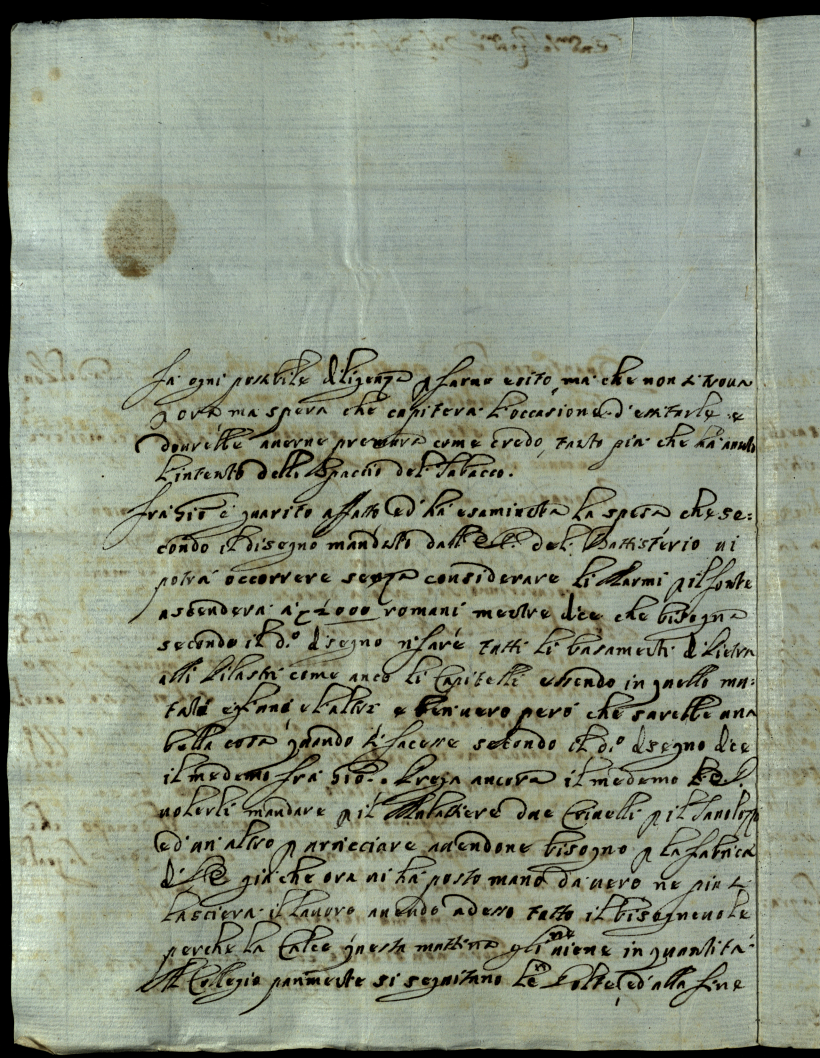 fa ogni posibile diligenza p farne esito, ma che non si trova
p ora ma spera che capiterà l'occasione d'esitarle e
dourebbe auerne premura come credo, tanto più che hà auuto
l'intento dello Spacio del Tabacco.
fra Giò è guarito affatto ed hà esaminata la spesa che se:
condo il disegno mandato dall' del Battisterio ui
potrà occorrere senza considerare li Marmi p il fonte
ascenderà à 1000 romani mentre dice che bisogna
secondo il d.º disegno rifare tutti li basamenti di Pietra
alli Pilastri come anco li Capitelli essendo in quello mu:
tati e l'uni e l'altri e ben uero però che sarebbe una
bella cosa quando si facesse secondo il d.º disegno dice
il medemo fra Giò. Prega ancora il medemo
uolerli mandare p il Mulattiere due Criuelli p il
ed un altro p arricciare auendone bisogno p la fabrica
di già che ora ui hà posto mano da uero ne più si
lascierà il lauoro auendo adesso tutto il bisogneuole
perche la Calce questa mattina gli niene in quantità
Al Collegio parimente si seguitano le Volte, ed alla fine